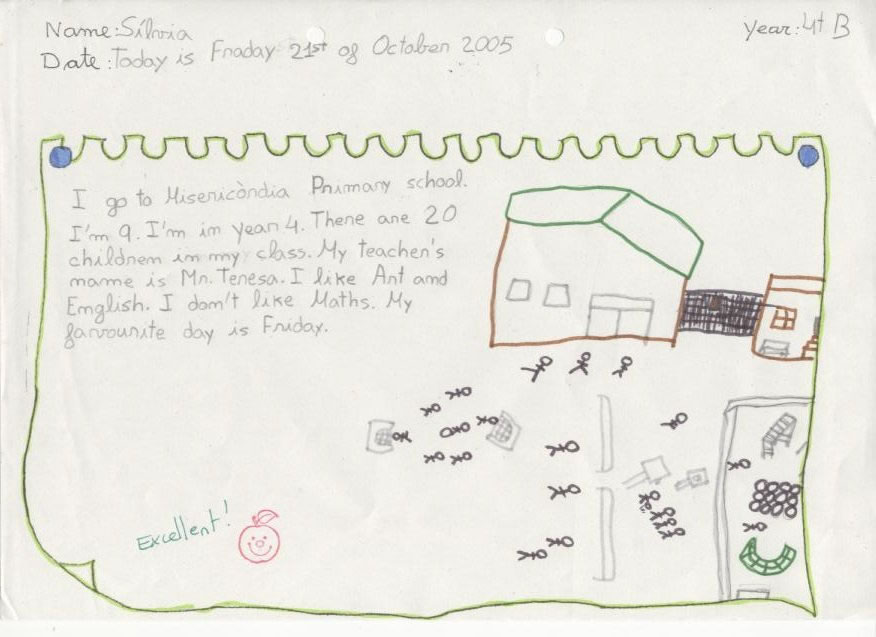 Name: Sílvia
Year: 4t B
Date: Today is Friday 21st of October 2005
I go to Misericòrdia Primary school.
I'm 9. I'm in year 4. There are 20
children in my class. My teacher's
name is Mr. Teresa. I like Art and
English. I don't like Maths. My
favourite day is Friday.
Excellent!